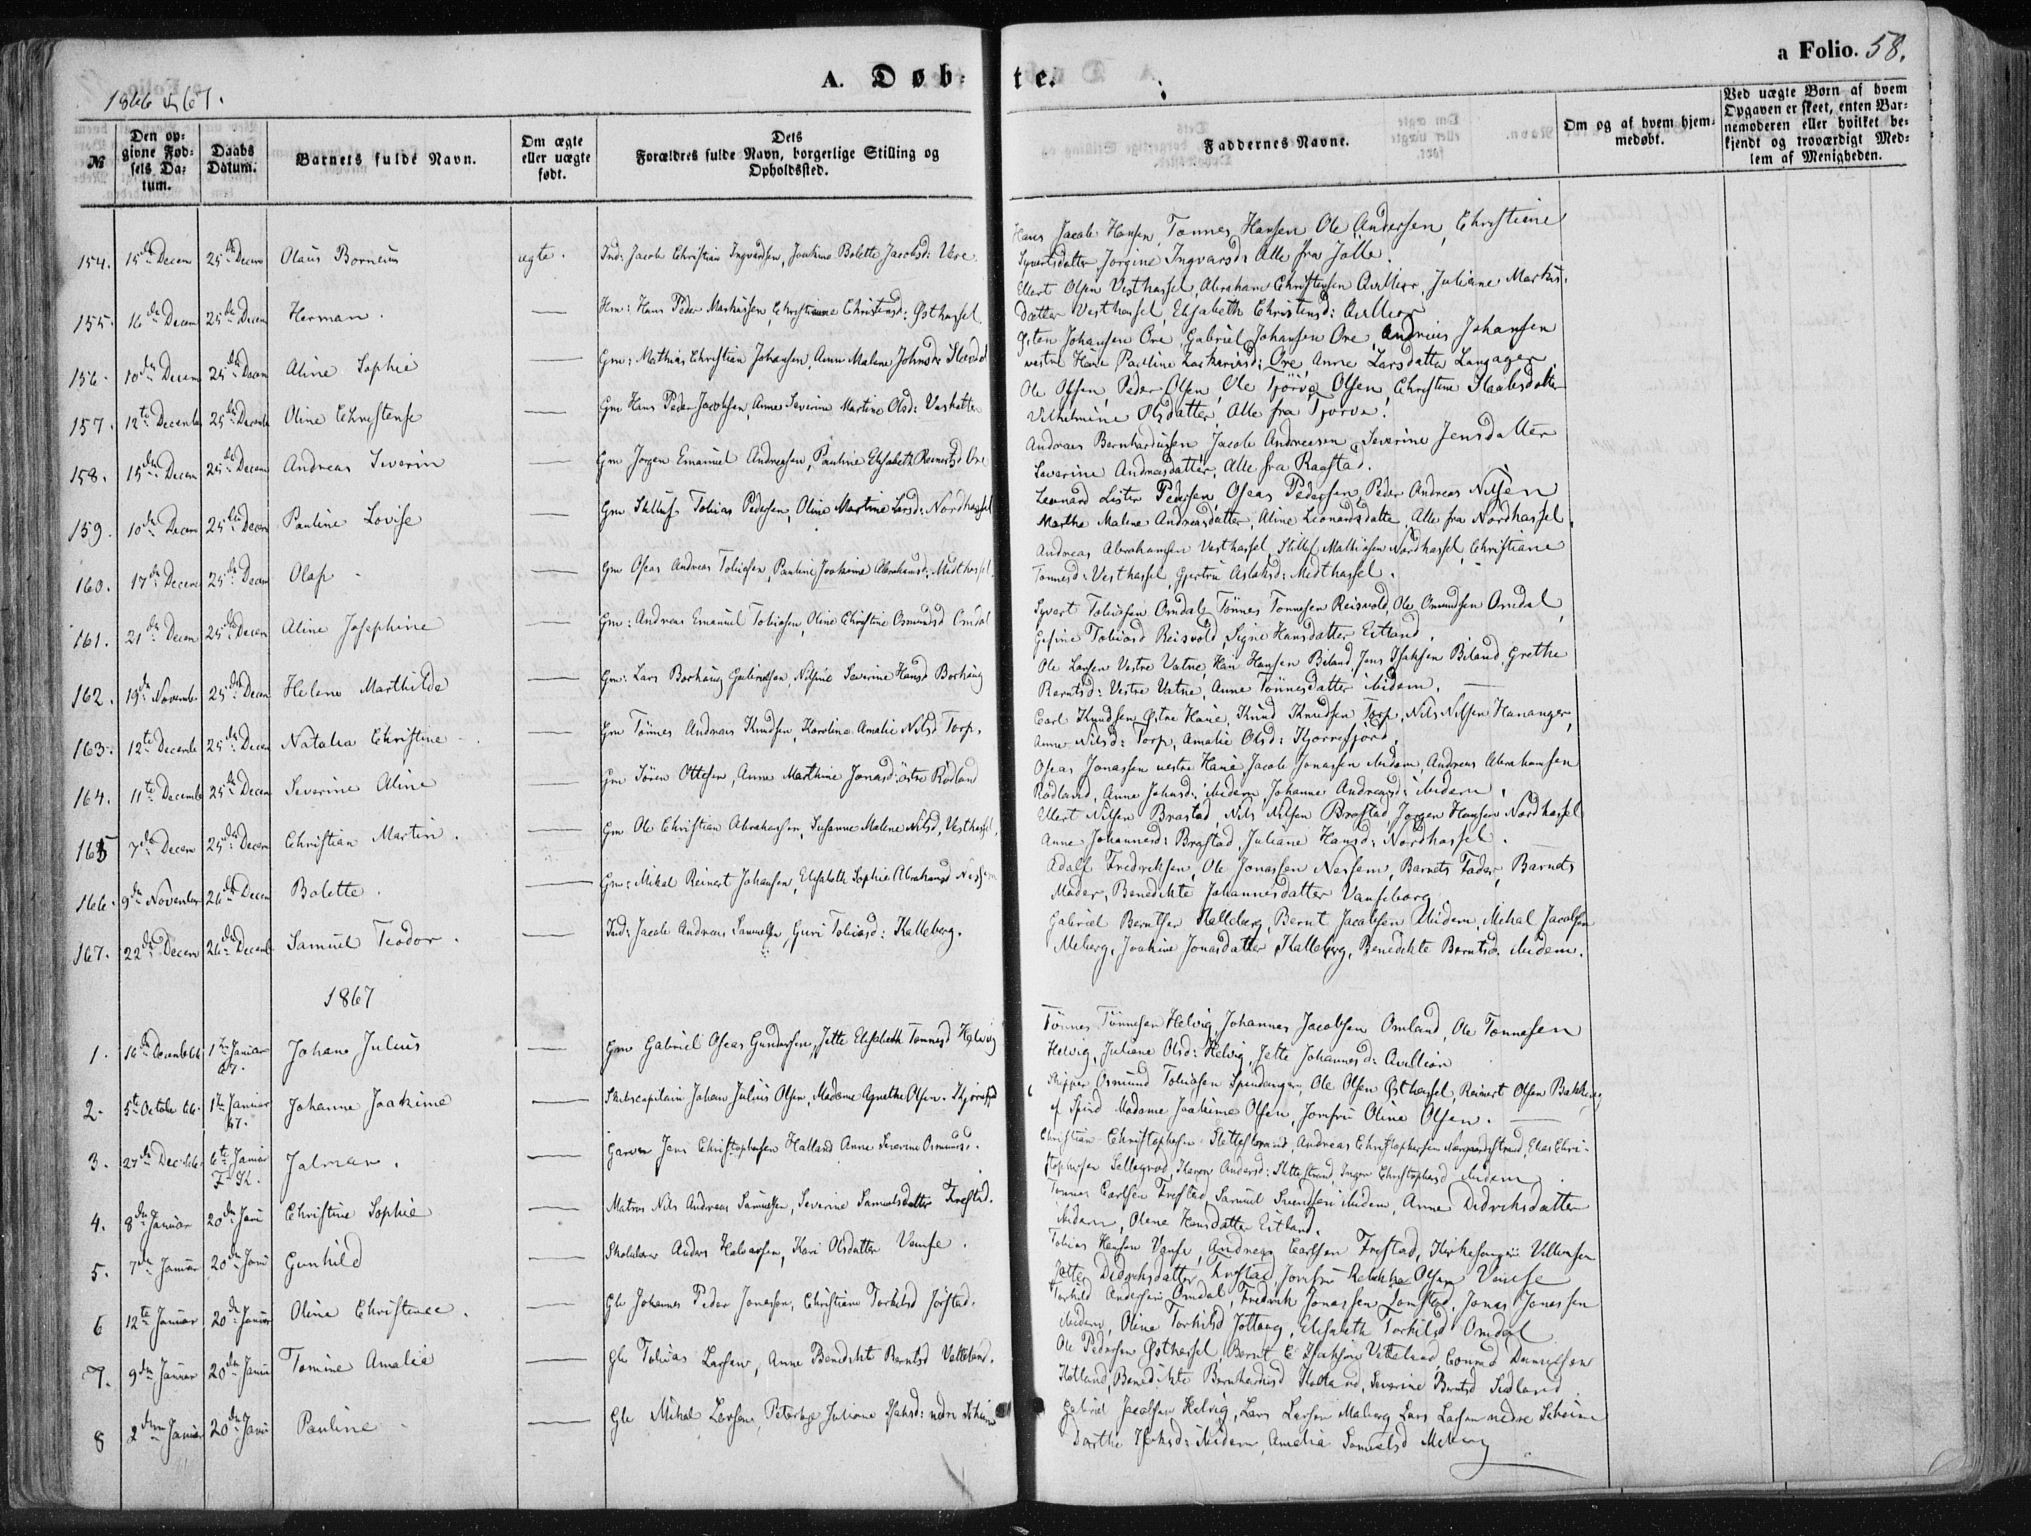 1866 & 67.
A. Døb-
te.
a Folio. 58.
№
Den opgivne Fødsels Datum.
Daabs Datum.
Barnets fulde Navn.
Om ægte eller uægte født.
Dets Forældres fulde Navn, borgerlige Stilling og Opholdssted.
Faddernes Navne.
Om og af hvem hjemmedøbt.
Ved uægte Børn af hvem Opgaven er skeet, enten Barnemoderen eller hvilket bekjendt og troværdigt Medlem af Menigheden.
Hans Jacob Hansen, Tønnes Hansen Ole Andersen, Christiane
154. 15de Decem 25de Decem Olaus Borneus ægte. Ind: Jacob Christian Ingvardsen, Joakime Bolette Jacobsd: Vere
Syvertsdatter Jorgine Ingvarsd: Alle fra Jølle.
Ellert Olsen Vesthassel, Abraham Christensen Aullion, Juliane Markus-
155. 16de Decem 25de Decem Herman. — Hm: Hans Peder Markussen, Christiane Christensd: Østhassel
datter Vesthassel, Elisabeth Christensd: Aullion
Østen Johansen Ore, Gabriel Johansen Ore, Andreas Johansen
156. 10de Decem 25de Decem Aline Sophie — Gm: Mathias Christian Johansen, Anne Malene Johnsdr
vestre Haue Pauline Zachariasd: Ore, Anne Larsdatter Langager.
Ole Olsen, Peder Olsen, Ole Tjørve Olsen, Christine
157. 12te Decembr 25de Decembr Oline Christense — Gm Hans Peder Jacobsen, Anne Severine Martine Olsd: Vashatter
Vilhelmine Olsdatter, Alle fra Tjørve.
Andreas Bernhardussen Jacob Andreasen Severine Jensdatter
158. 15de Decem 25de Decem Andreas Severin — Gm Jørgen Emanuel Andreasen, Pauline Elisabeth Reinertsd Ore
Severine Andreasdatter, Alle fra Ragstad.
Leonard Lister Pedersen, Oseas Pedersen, Peder Andreas Nilsen
159. 10de Decem 25de Decem Pauline Lovise — Gm Tobias Pedersen, Oline Martine Larsd: Nordhassel
Marthe Malene Andreasdatter, Aline Leonardsdatter, Alle fra Nordhassel.
Andreas Abrahamsen Vesthassel, Mathiasen Nordhassel, Christiane
160. 17de Decem 25de Decem Olaf — Gm Oseas Andreas Tobiasen, Pauline Joakime Abrahamsd: Midthassel.
Tønnesd: Vesthassel, Gjertru Aslaksd: Midthassel.
Syvert Tobiasen Omdal, Tønnes Tønnesen Reisvold, Ole Omundsen Omdal,
161. 21de Decem 25de Decem Aline Josephine — Gm: Andreas Emanuel Tobiasen, Oline Christine Osmundsd Omdal
Gesine Tobiasd Reisvold, Signe Hansdatter Eitland.
Ole Larsen Vestre Vatne, Hans Hansen Biland, Jens Isaksen Biland, Grethe
162. 19de Novembr 25de Decem Helene Marthilde — Gm: Lars Borhaug Gabrielsen, Nilsine Severine Hansd Borhaug
Berntsd: Vestre Vatne, Anne Tønnesdatter ibidem.
Carl Knudsen Østre Haue, Knud Knudsen Torp, Nils Nilsen Hananger,
163. 12te Decembr 25de Decem Natalia Christine — Gm Tønnes Andreas Knudsen, Karoline Amalie Nilsd Torp.
Anne Nilsd: Torp, Amalie Olsd: Kjorrefjord.
Oseas Jonassen vestre Haue, Jacob Jonassen ibidem, Andreas Abrahamsen
164. 11te Decembr 25de Decem Severine Aline — Gm Søren Ottesen, Anne Marthine Jonasd: østre Rødland
Rødland, Anne Johnsd: ibidem, Johanne Andreasd: ibidem.
Ellert Nilsen Brastad, Nils Nilsen Brastad, Jørgen Hansen Nordhassel
165 7de Decem 25de Decem Christian Martin. — Gm Ole Christian Abrahamsen, Susanne Malene Nilsd, Vesthassel.
Anne Johannesd: Brastad, Juliane Hansd: Nordhassel.
Adolf Fredriksen, Ole Jonassen Nessem, Barnets Fader, Barnets
166. 9de November 26de Decem Bolette. — Gm: Mikal Reinert Johansen, Elisabeth Sophie Abrahamsd
Moder, Benedikte Johannesdatter Vanseborg.
Gabriel Berntsen Kalleberg, Bernt Jacobsen ibidem, Mikal Jacobsen
167. 22de Decem 26de Decembr Samuel Teodor. — Ind: Jacob Andreas Samuelsen, Guri Tobiasd: Kalleberg.
Meberg, Joakine Jonasdatter Kalleberg, Benedikte Berntsd. ibidem.
1867
Tønnes Tønnesen Helvig, Johannes Jacobsen Omland, Ole Tønnesen
1. 16de Decembr 66 1te Januar 67. Johan Julius — Gm Gabriel Oseas Gundersen, Jette Elisabeth Tønnesd Helvig
Helvig, Juliane Olsd: Helvig, Jette Johannesd: Aullion
Skipper Osmund Tobiasen Spindanger, Ole Olsen Østhassel, Reinert Olsen
2. 5te Octobr 66. 1te Januar 67. Johanne Joakime — Skibscapitain Johan Julius Olsen, Madame Agnethe Olsen.
Madame Joakime Olsen, Jomfru Oline Olsen.
Christian Christophersen Slettestrand, Andreas Christophersen Nørgaardsstrand, Elias Chri-
3. 27de Dec. 66. 6te Januar Jalmar. — Garver Jens Christophersen Halland Anne Severine Osmundsd.
stophersen Sellegrod, Karen Andersd: Slettestrand, Inger Christophersd ibidem
Tønnes Carlsen Frestad, Samuel Svendsen ibidem, Anne Didriksdatter
4. 8de Januar 20de Janu Christine Sophie — Matros Nils Andreas Samuelsen, Severine Samuelsdatter Frestad.
ibidem, Olene Hansdatter Eitland.
Tobias Hansen Vanse, Andreas Carlsen Frestad, Kirkesanger Villumsen
5. 7de Januar 20de Janu Gunhild — Skolelærer Anders Halvorsen, Kari Olsdatter Vanse.
Jette Didriksdatter Frestad, Jomfru Rebekka Olsen Vanse
Torkild Andersen Omdal, Fredrik Jonassen, Jonas Jonassen
6 12te Januar 20de Januar Oline Christence. — Gb Johannes Peder Jonassen, Christiane Torkilsd Jørstad.
ibidem, Oline Torkilsd, Elisabeth Torkilsd Omdal
Ole Pedersen Østhassel, Bernt E Isaksen Vetteland, Conrad Danielsen
7. 9de Januar 20de Janu Tomine Amalie — Gb Tobias Larsen, Anne Benedikt Berntsd Vetteland.
Benedikte Bernhardusd, Severine Berntsd
Gabriel Jacobsen Helvig, Lars Larsen Maberg, Lars Larsen nedre Skeime
8 2den Januar 20de Janu Pauline — Gb Mikal Larsen, Juliane Isaksd: nedre Skeime
Dorthe Isaksd: ibidem, Amalia Samuelsd Meberg